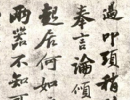 過叩頭稍
奉言論傾
起居何如
兩器不知可